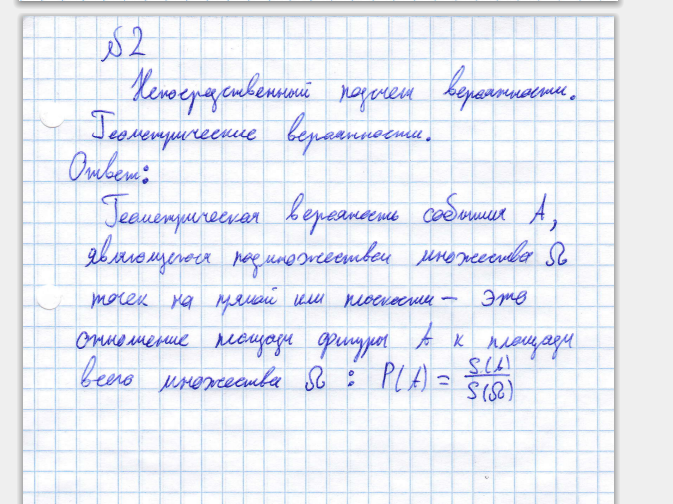 №2
Непосредственный подсчет вероятности.
Геометрические вероятности.
Ответ:
Геометрическая вероятность события A,
являющегося подмножеством множества Ω
точек на прямой или плоскости – это
отношение площади фигуры A к площади
всего множества Ω : P(A) = S(A)/S(Ω)